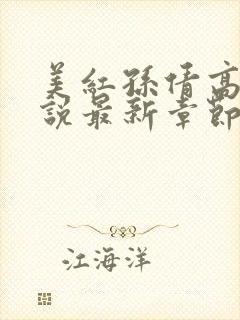 美红孫倩高
說最新章節
江海洋